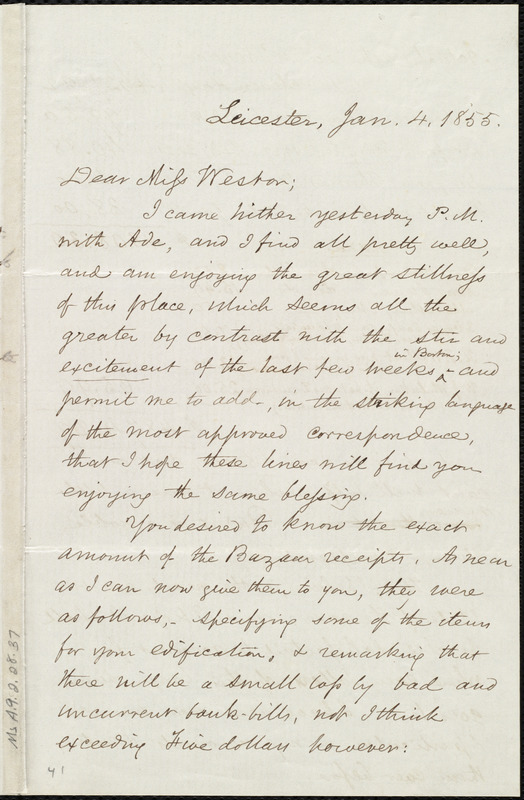 Leicester, Jan. 4. 1855.
Dear Miss Weston;
I came hither yesterday P.M.
with Ade, and I find all pretty well,
and am enjoying the great stillness
of this place, which seems all the
greater by contrast with the stir and
in Boston;
excitement of the last few weeks ^ - and
permit me to add -, in the striking language
of the most approved correspondence,
that I hope these lines will find you
enjoying the same blessing.
You desired to know the exact
amount of the Bazaar receipts. As near
as I can now give them to you, they were
as follows, - specifying some of the items
for your edification, & remarking that
there will be a small loss by bad and
uncurrent bank-bills, not I think
exceeding Five dollars however:
Ms A.9.2.28.37
41